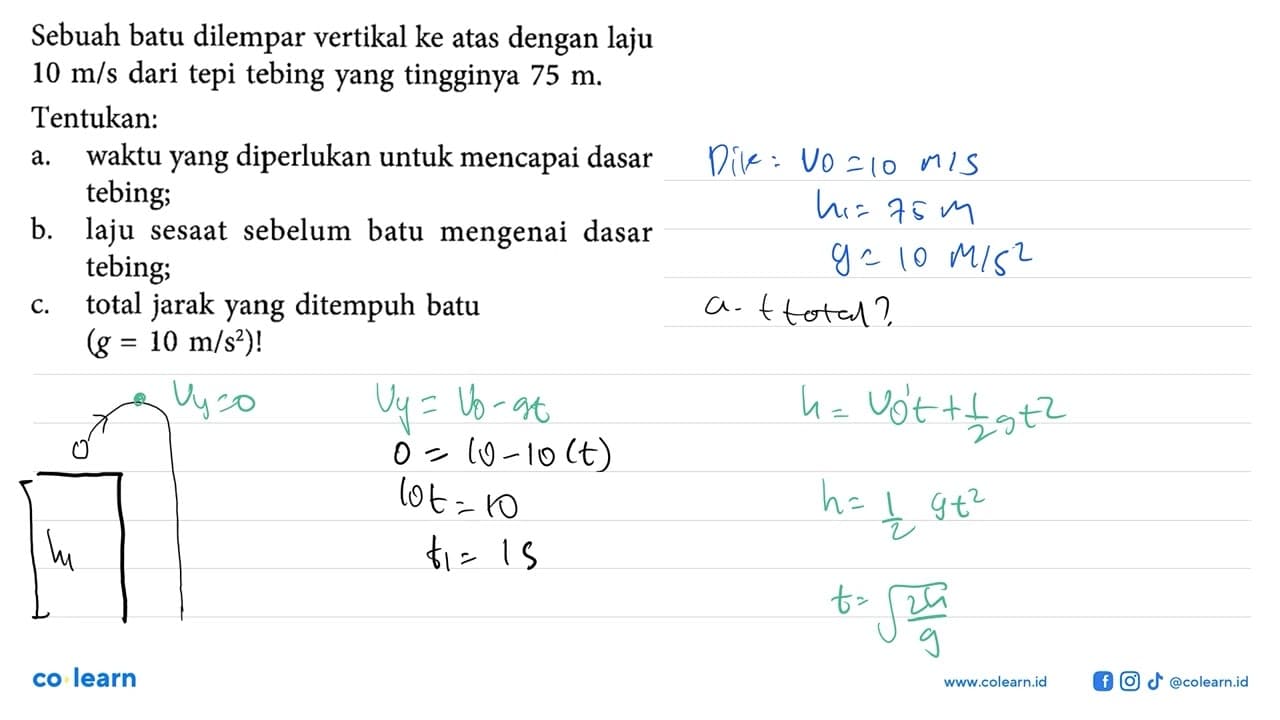 Sebuah batu dilempar vertikal ke atas dengan laju
10 m/s dari tepi tebing yang tingginya 75 m.
Tentukan:
a. waktu yang diperlukan untuk mencapai dasar
tebing;
b. laju sesaat sebelum batu mengenai dasar
tebing;
c. total jarak yang ditempuh batu
(g = 10 m/s²)!
Dik : V0 = 10 m/s
h1 = 75 m
g = 10 m/s²
a. t total?
Vy = 0
h1
Vy = V0 - gt
0 = 10 - 10 (t)
10t = 10
t1 = 1 s
h = V0't + 1/2 gt²
h = 1/2 gt²
t = √(2h/g)
co learn
www.colearn.id
@colearn.id